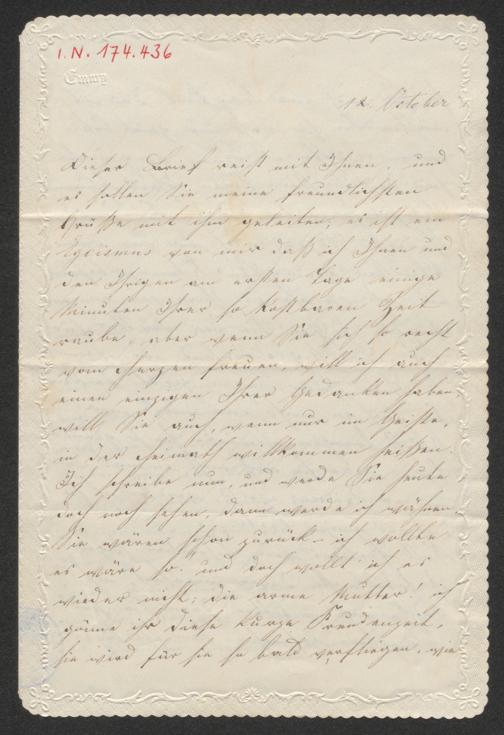 I.N. 174.436
Emmy
12 October
Dieser Brief reist mit Ihnen, und
es sollen Sie meine freundlichsten
Grüße mit ihm geleiten; es ist ein
Egoismus von mir daß ich Ihnen und
den Ihrigen am ersten Tage einige
Minuten Ihrer so kostbaren Zeit
raube, aber wenn Sie sich so recht
vom Herzen freuen, will ich auch
einen einzigen Ihrer Gedanken haben,
will Sie auch, wenn nur im Geiste,
in der Heimath willkommen heißen.
Ich schreibe nun, und werde Sie heute
doch noch sehen, dann werde ich wähnen
Sie wären schon zurück – ich wollte
es wäre so und doch wollt ich es
wieder nicht; die arme Mutter! ich
gönne ihr diese kurze Freudenzeit,
sie wird für sie so bald verfliegen, wie